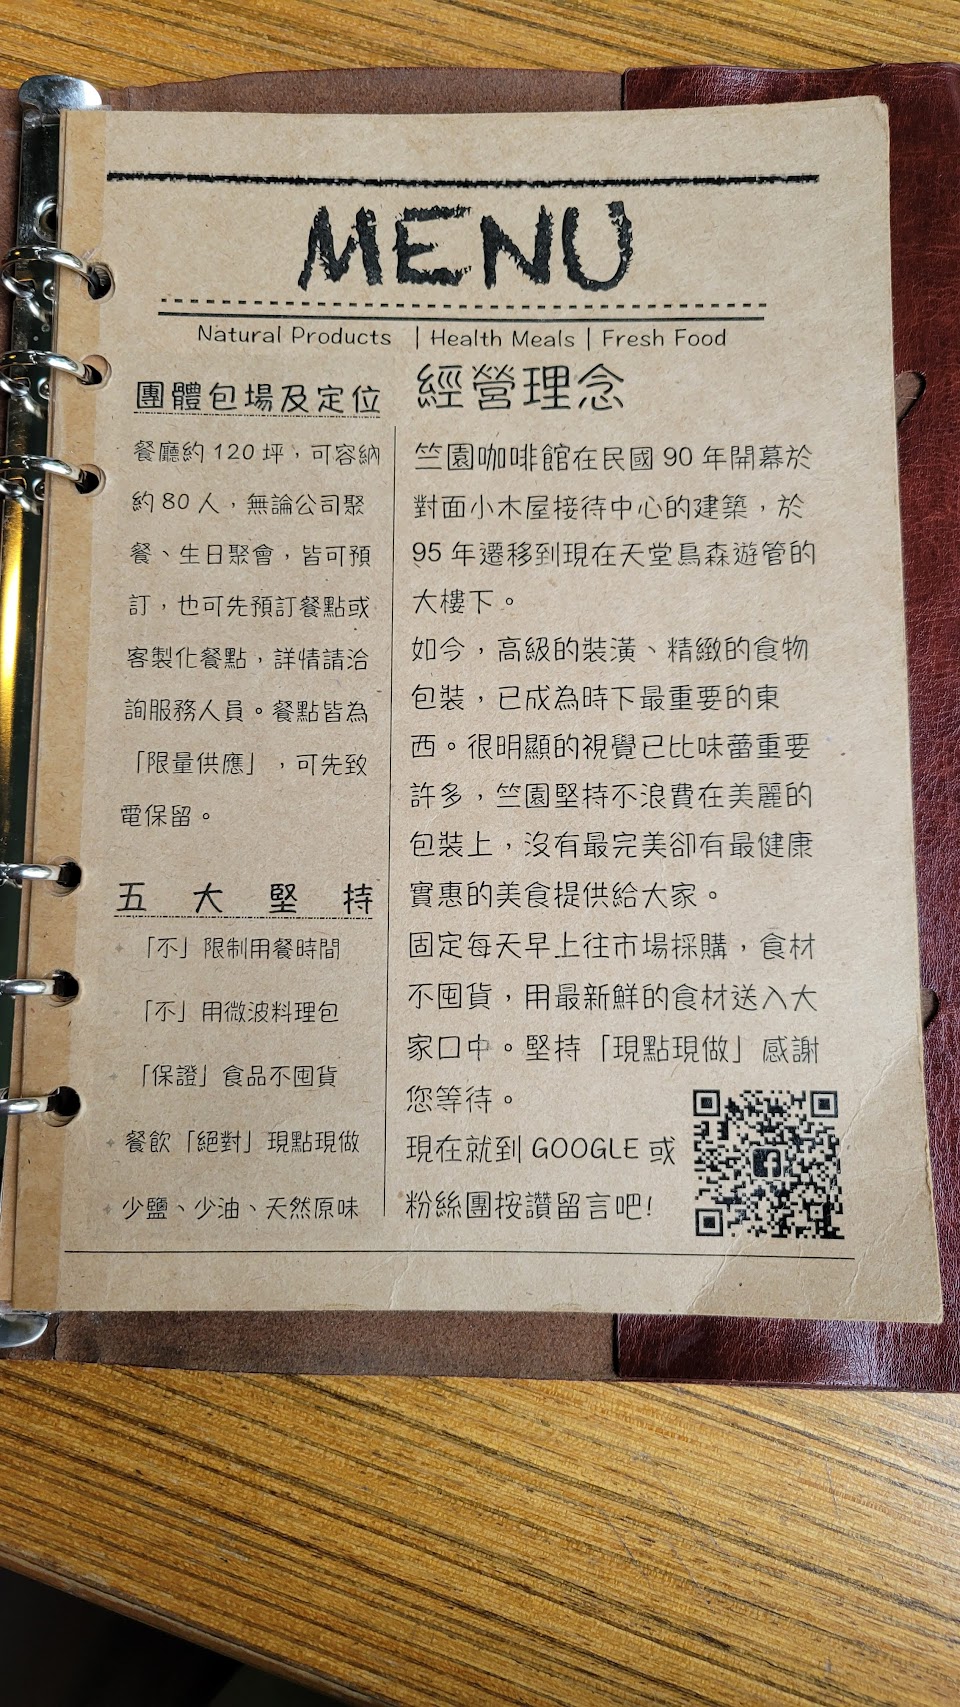 MENU
Natural Products | Health Meals | Fresh Food
團體包場及定位
餐廳約 120 坪，可容納
約 80 人，無論公司聚
餐、生日聚會，皆可預
訂，也可先預訂餐點或
客製化餐點，詳情請洽
詢服務人員。餐點皆為
「限量供應」，可先致
電保留。
五大堅持
「不」限制用餐時間
「不」用微波料理包
「保證」食品不囤貨
餐飲「絕對」現點現做
少鹽、少油、天然原味
經營理念
竺園咖啡館在民國 90 年開幕於
對面小木屋接待中心的建築，於
95 年遷移到現在天堂鳥森遊管的
大樓下。
如今，高級的裝潢、精緻的食物
包裝，已成為時下最重要的東
西。很明顯的視覺已比味蕾重要
許多，竺園堅持不浪費在美麗的
包裝上，沒有最完美卻有最健康
實惠的美食提供給大家。
固定每天早上往市場採購，食材
不囤貨，用最新鮮的食材送入大
家口中。堅持「現點現做」感謝
您等待。
現在就到 GOOGLE 或
粉絲團按讚留言吧!